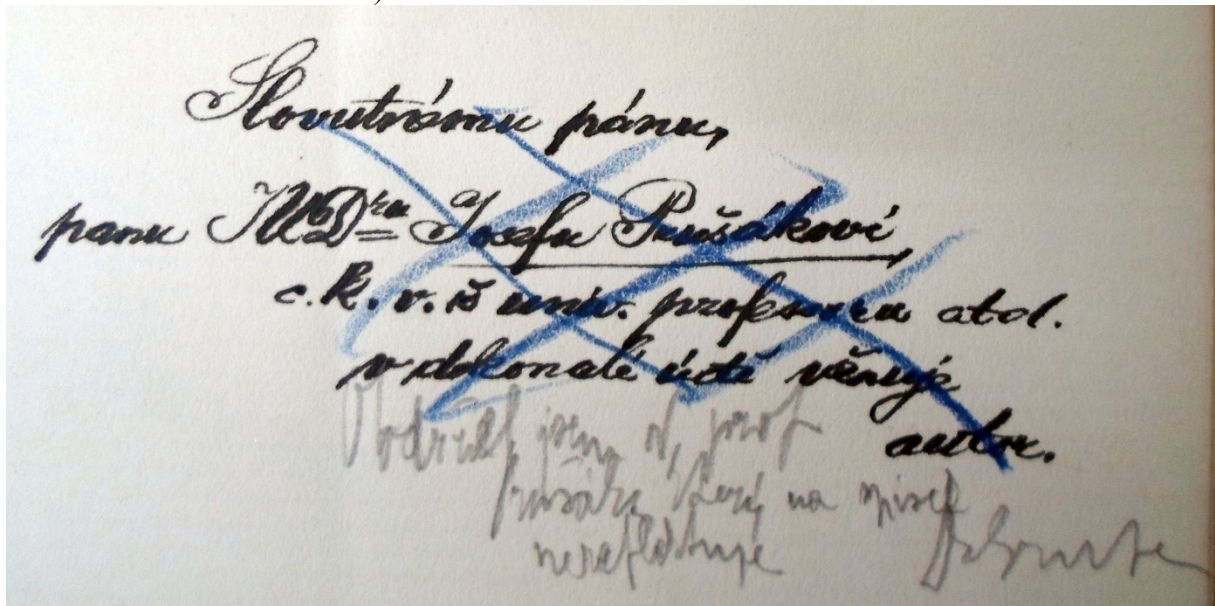 Slovutnému pánu,
panu JUDru Josefu Prušákovi,
c. k. v. š univ. profesoru atd.
v dokonalé úctě věnuje
autor.
Obdržel jsem od prof
Prušáka, který na spisek
nereflektuje